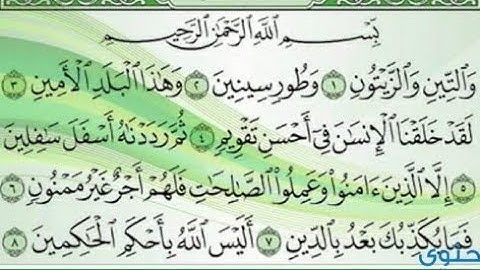 بِسْمِ اللَّهِ الرَّحْمَٰنِ الرَّحِيمِ
وَالتِّينِ وَالزَّيْتُونِ ١ وَطُورِ سِينِينَ ٢ وَهَٰذَا الْبَلَدِ الْأَمِينِ ٣
لَقَدْ خَلَقْنَا الْإِنسَٰنَ فِىٓ أَحْسَنِ تَقْوِيمٍ ٤ ثُمَّ رَدَدْنَٰهُ أَسْفَلَ سَٰفِلِينَ
٥ إِلَّا الَّذِينَ ءَامَنُوا وَعَمِلُوا الصَّٰلِحَٰتِ فَلَهُمْ أَجْرٌ غَيْرُ مَمْنُونٍ ٦
فَمَا يُكَذِّبُكَ بَعْدُ بِالدِّينِ ٧ أَلَيْسَ اللَّهُ بِأَحْكَمِ الْحَٰكِمِينَ ٨
محتوى